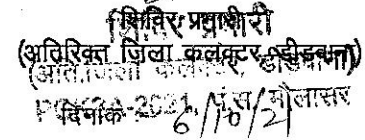 शिविर प्रभारी
(अतिरिक्त जिला कलक्टर, डीडवाना)
पं.स. मौलासर
दिनांक 6/10/21